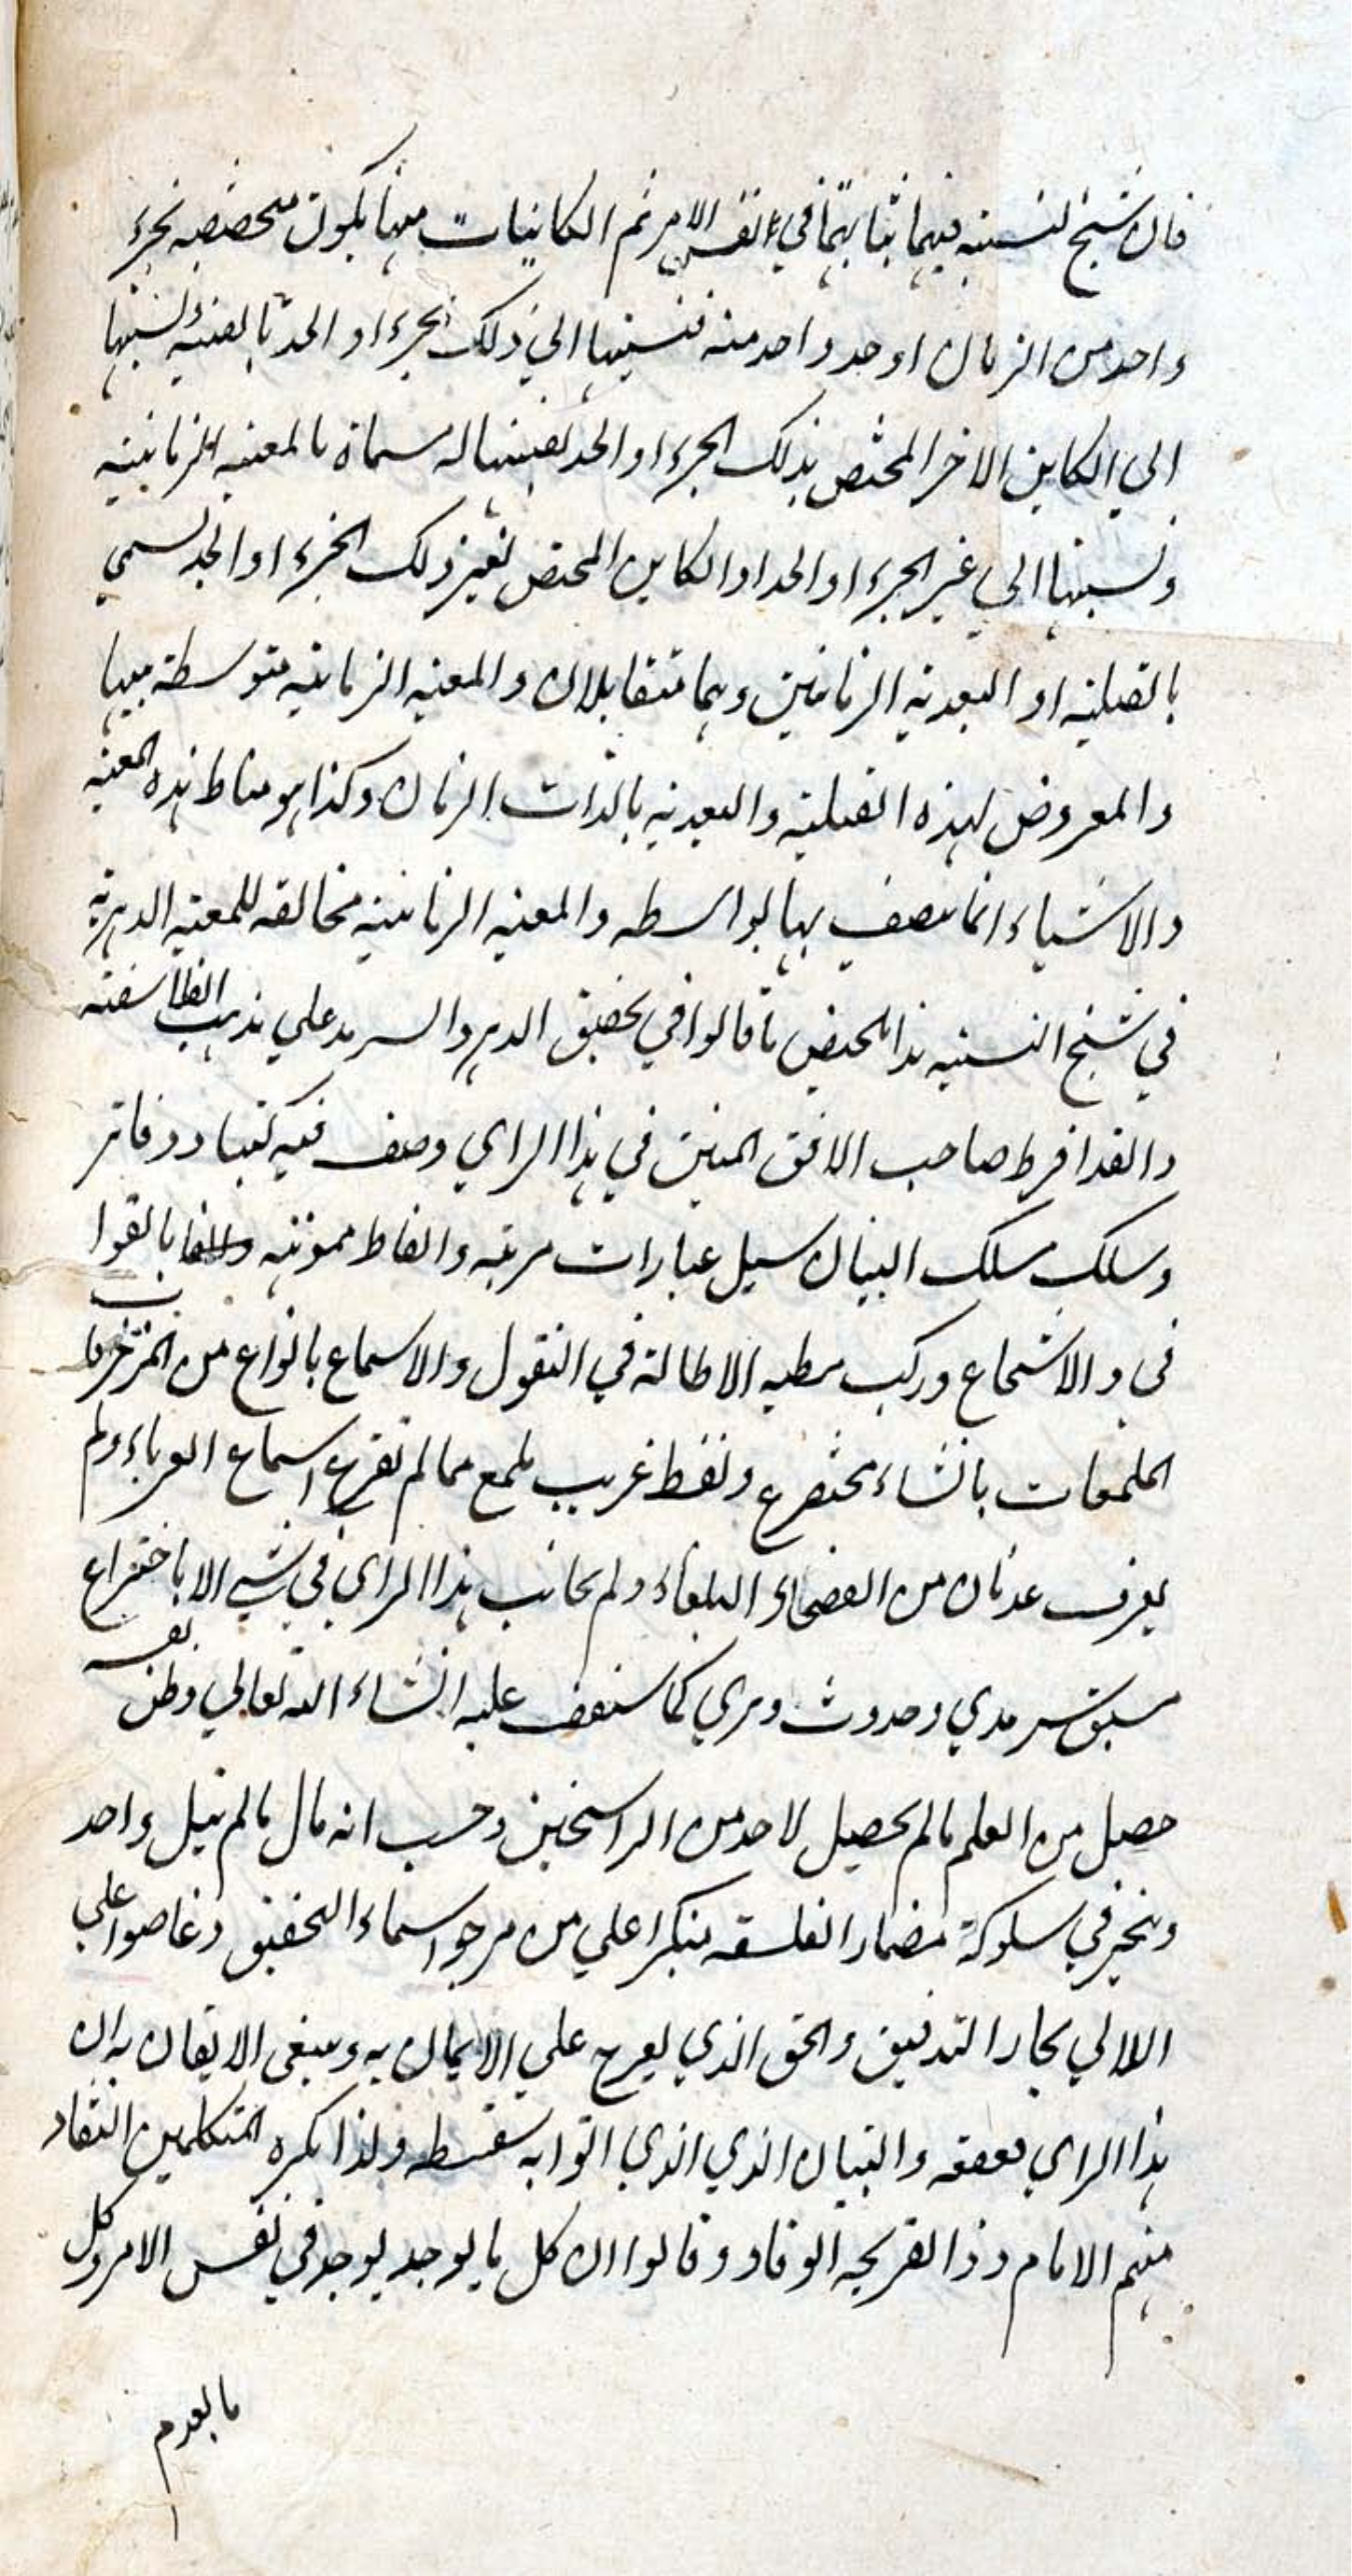 فان شبح النسبه فيهما ثباتهما في نفس الامر ثم الكائنات منها يكون متخصصه بجزء
واحد من الزمان او حد واحد منه فنسبتها الي ذلك الجزء او الحد بالمعيه ونسبتها
الي الكاين الاخر المختص بذلك الجزء او الحد بعينها له مسماة بالمعيه الزمانيه
ونسبتها الي غير الجزء او الحد او الكاين المختص بغير ذلك الجزء او الحد تسمي
بالقبليه او البعديه الزمانيين وهما متقابلان والمعيه الزمانيه متوسطة بينها
والمعروض لهذه القبليه والبعديه بالذات الزمان وكذا هو مناط هذه المعيه
والاشياء انما يتصف بها بواسطه والمعيه الزمانيه مخالفه للمعيه الدهريه
في شبح النسبيه هذا تلخيص ما قالوا في تحقيق الدهر والسرمد علي مذهب الفلاسفته
والقد افرط صاحب الافق المبين في هذا الراي وصنف فيه كتبا ودفاتر
وسلك مسلك البيان سبيل عبارات مرتبه والفاظ مموهه بالقوا
في والاسجاع وركب مطيه الاطالة في النقول والاسماع بانواع من المزخرفات
الملمعات بانشاء مخترع ولفظ غريب ملمع مما لم تقرع اسماع العرباء ولم
يعرف عدنان من الفصحاء والبلغاء ولم يجانب هذا الراي في شي الا باختراع
سبق سرمدي وحدوث دهري كما ستقف عليه انشاء الله تعالي وظن بقسه
حصيل من العلم ما لم يحصيل لاحد من الراسخين وحسب انه نال ما لم ينيل واحد
وتبختر في سلوكه مضمار الفلسفه متكبرا علي من عرجوا سماء التحقيق وغاصوا علي
اللالي بحار التدقيق والحق الذي يعرج علي الايمان به وينبغي الايقان به ان
هذا الراي والتبيان الذي الذي اتوا به سفسطه ولذا نكره المتكلمين النقاد
منهم الامام وذا القريحه الوقاد وقالوا ان كل ما يوجد يوجد في نفس الامر وكل
ما يعدم